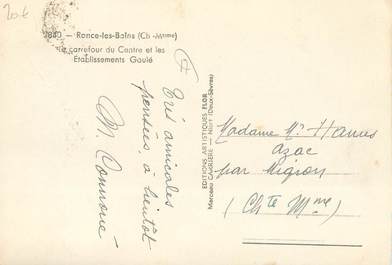 20€
7880 - Ronce-les-Bains (Ch.-Mme)
Le carrefour du Centre et les
Etablissements Goulé
Très amicales
pensées, à bientôt
M.
EDITIONS ARTISTIQUES FLOR
Marceau CARRIERE - Niort (Deux-Sèvres)
Madame
Azac
par Migron
(Chte Mme)